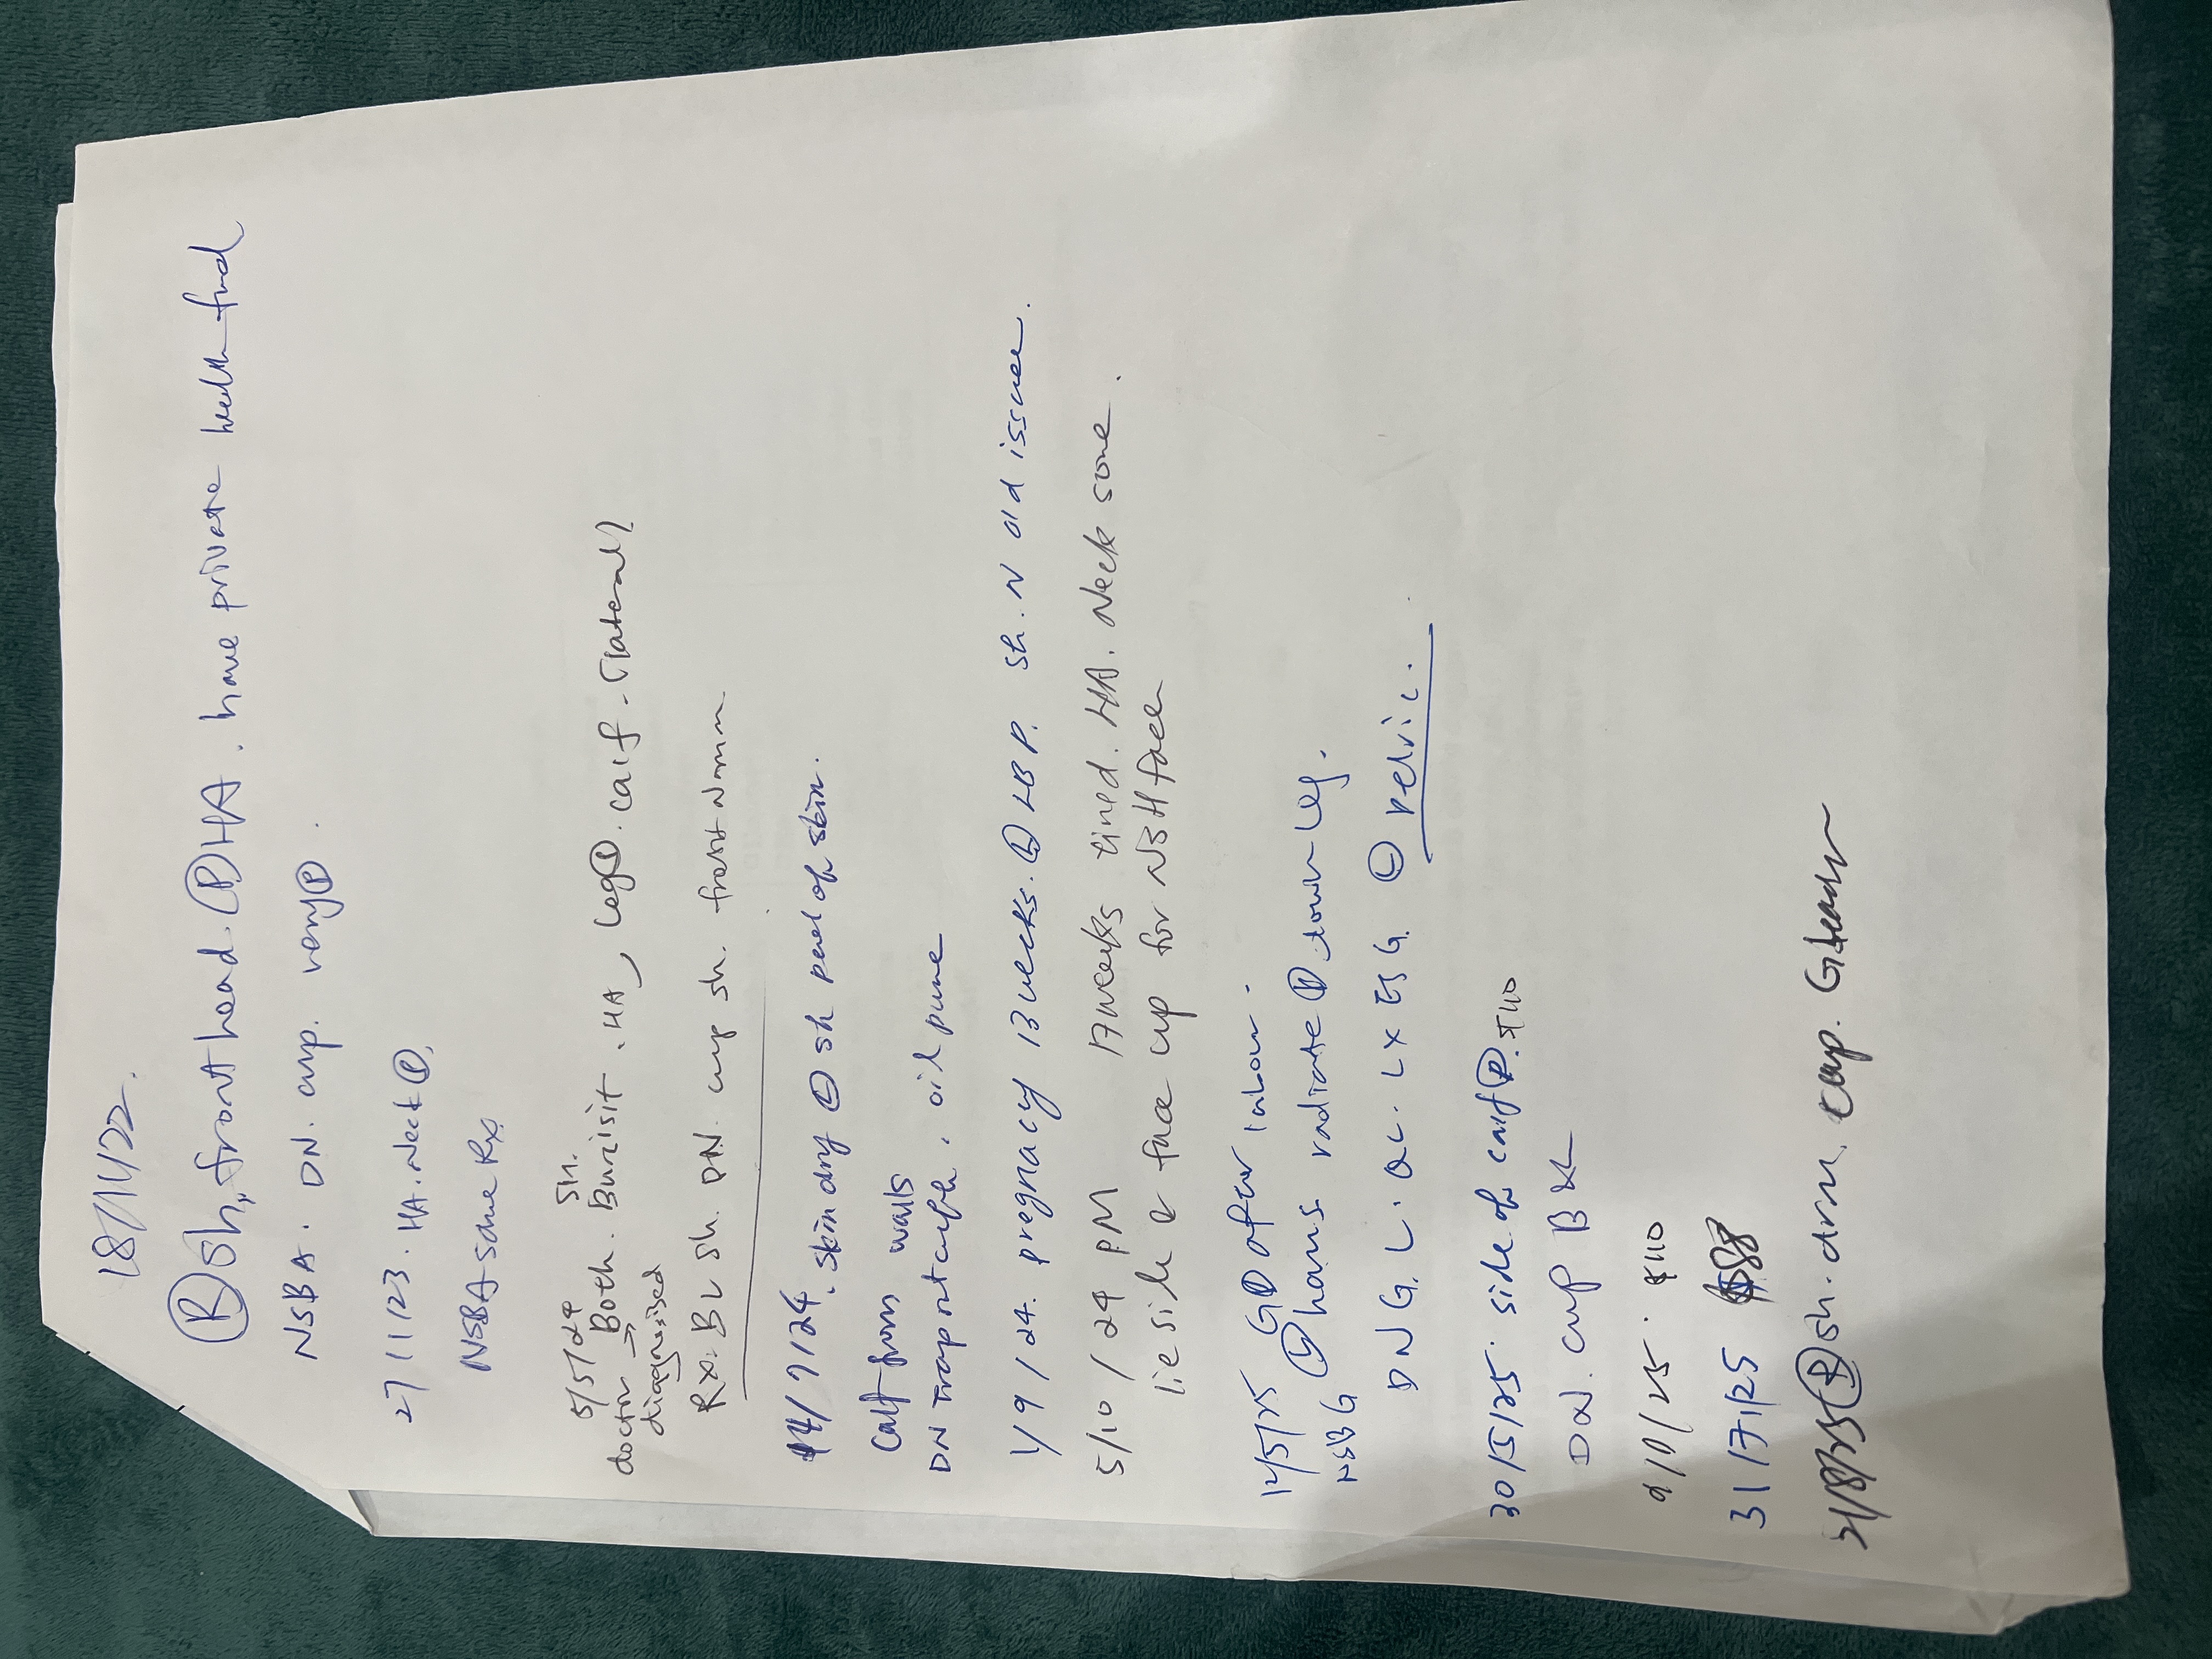 18/11/22.
Ⓡ sh, front head. Ⓟ HA. have private health fund
NSBA. DN. cup. very Ⓟ.
27/1/23. HA. Neck Ⓟ.
NSBA same Rx
5/5/24 sh.
doctor → Both. Burisit. HA, Leg Ⓟ. calf
diagnosised
Rx: BL sh. DN. cup sh. front
14/7/24. skin dry Ⓛ sh peel of skin.
calf from walls
DN trap, oil pure
1/9/24. pregnacy 13 weeks. LBP. sh. N old issue.
5/10/24 PM 17 weeks tired. HA. Neck sore.
lie side & face up for NSH face
12/5/25 G Ⓟ after labour.
NSBG hams radiate Ⓟ down leg.
DN G. L. QL. LX G. Ⓛ pelvic.
30/5/25. side of calf Ⓟ. $110
DN. cup B
/25. $110
31/7/25 $88
/8/25 Ⓡ sh. arm. cup.